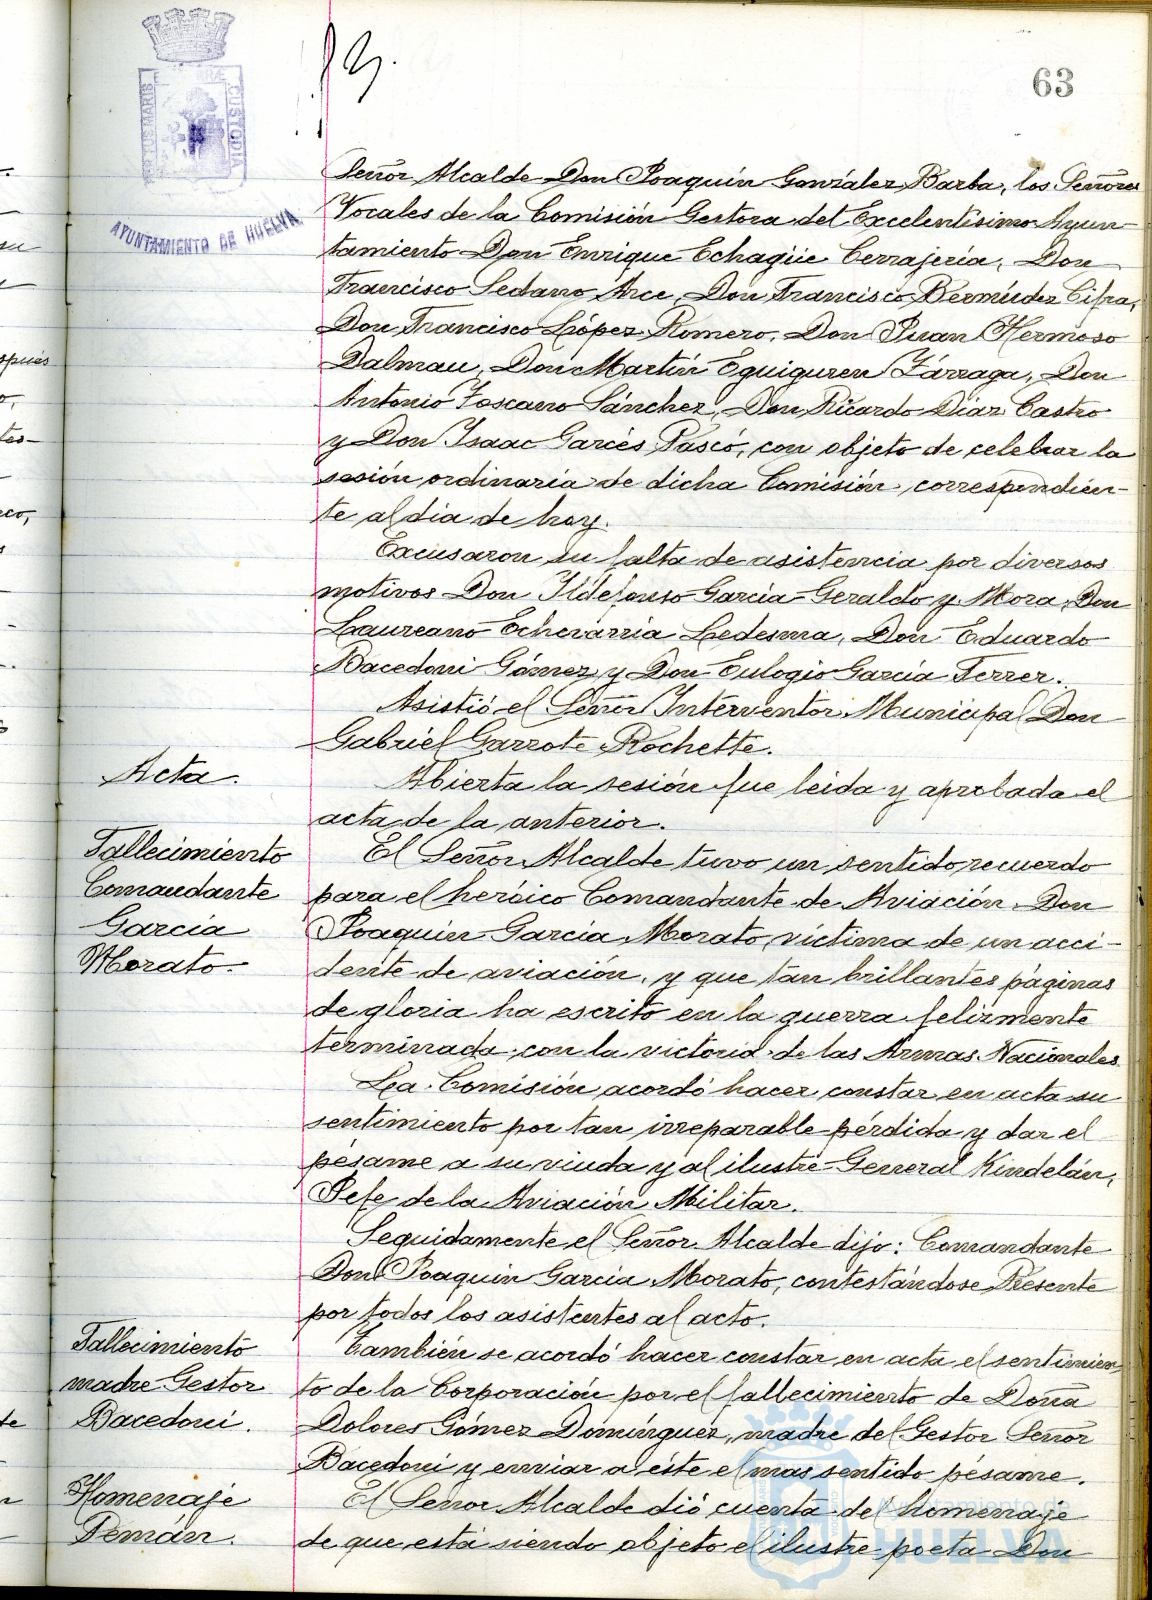 63
PORTUS MARIS ET TERRÆ CUSTODIA
AYUNTAMIENTO DE HUELVA
Señor Alcalde Don Joaquín González Barba, los Señores
Vocales de la Comisión Gestora del Excelentísimo Ayun-
tamiento Don Enrique Echagüe Cerrajería, Don
Francisco Sedano Arce, Don Francisco Bermúdez Cifra,
Don Francisco López Romero, Don Juan Hermoso
Dalmau, Don Martín Eguiguren Zárraga, Don
Antonio Toscano Sánchez, Don Ricardo Díaz Castro
y Don Isaac Garcés Pascó, con objeto de celebrar la
sesión ordinaria de dicha Comisión, correspondien-
te al día de hoy.
Excusaron su falta de asistencia por diversos
motivos Don Ildefonso García-Geraldo y Mora, Don
Laureano Echevarría Ledesma, Don Eduardo
Bacedoni Gómez y Don Eulogio García Ferrer.
Asistió el Señor Interventor Municipal Don
Gabriel Garrote Rochette.
Acta.
Abierta la sesión fue leída y aprobada el
acta de la anterior.
Fallecimiento
Comandante
García
Morato.
El Señor Alcalde tuvo un sentido recuerdo
para el heróico Comandante de Aviación Don
Joaquín García Morato, víctima de un acci-
dente de aviación, y que tan brillantes páginas
de gloria ha escrito en la guerra felizmente
terminada con la victoria de las Armas Nacionales
La Comisión acordó hacer constar en acta su
sentimiento por tan irreparable pérdida y dar el
pésame a su viuda y al ilustre General Kindelán,
Jefe de la Aviación Militar.
Seguidamente el Señor Alcalde dijo: Comandante
Don Joaquín García Morato, contestándose Presente
por todos los asistentes al acto.
Fallecimiento
madre Gestor
Bacedoni.
También se acordó hacer constar en acta el sentimien-
to de la Corporación por el fallecimiento de Doña
Dolores Gómez Domínguez, madre del Gestor Señor
Bacedoni y enviar a éste el mas sentido pésame.
Homenaje
Pemán.
El Señor Alcalde dió cuenta del homenaje
de que está siendo objeto el ilustre poeta Don
Ayuntamiento de
HUELVA